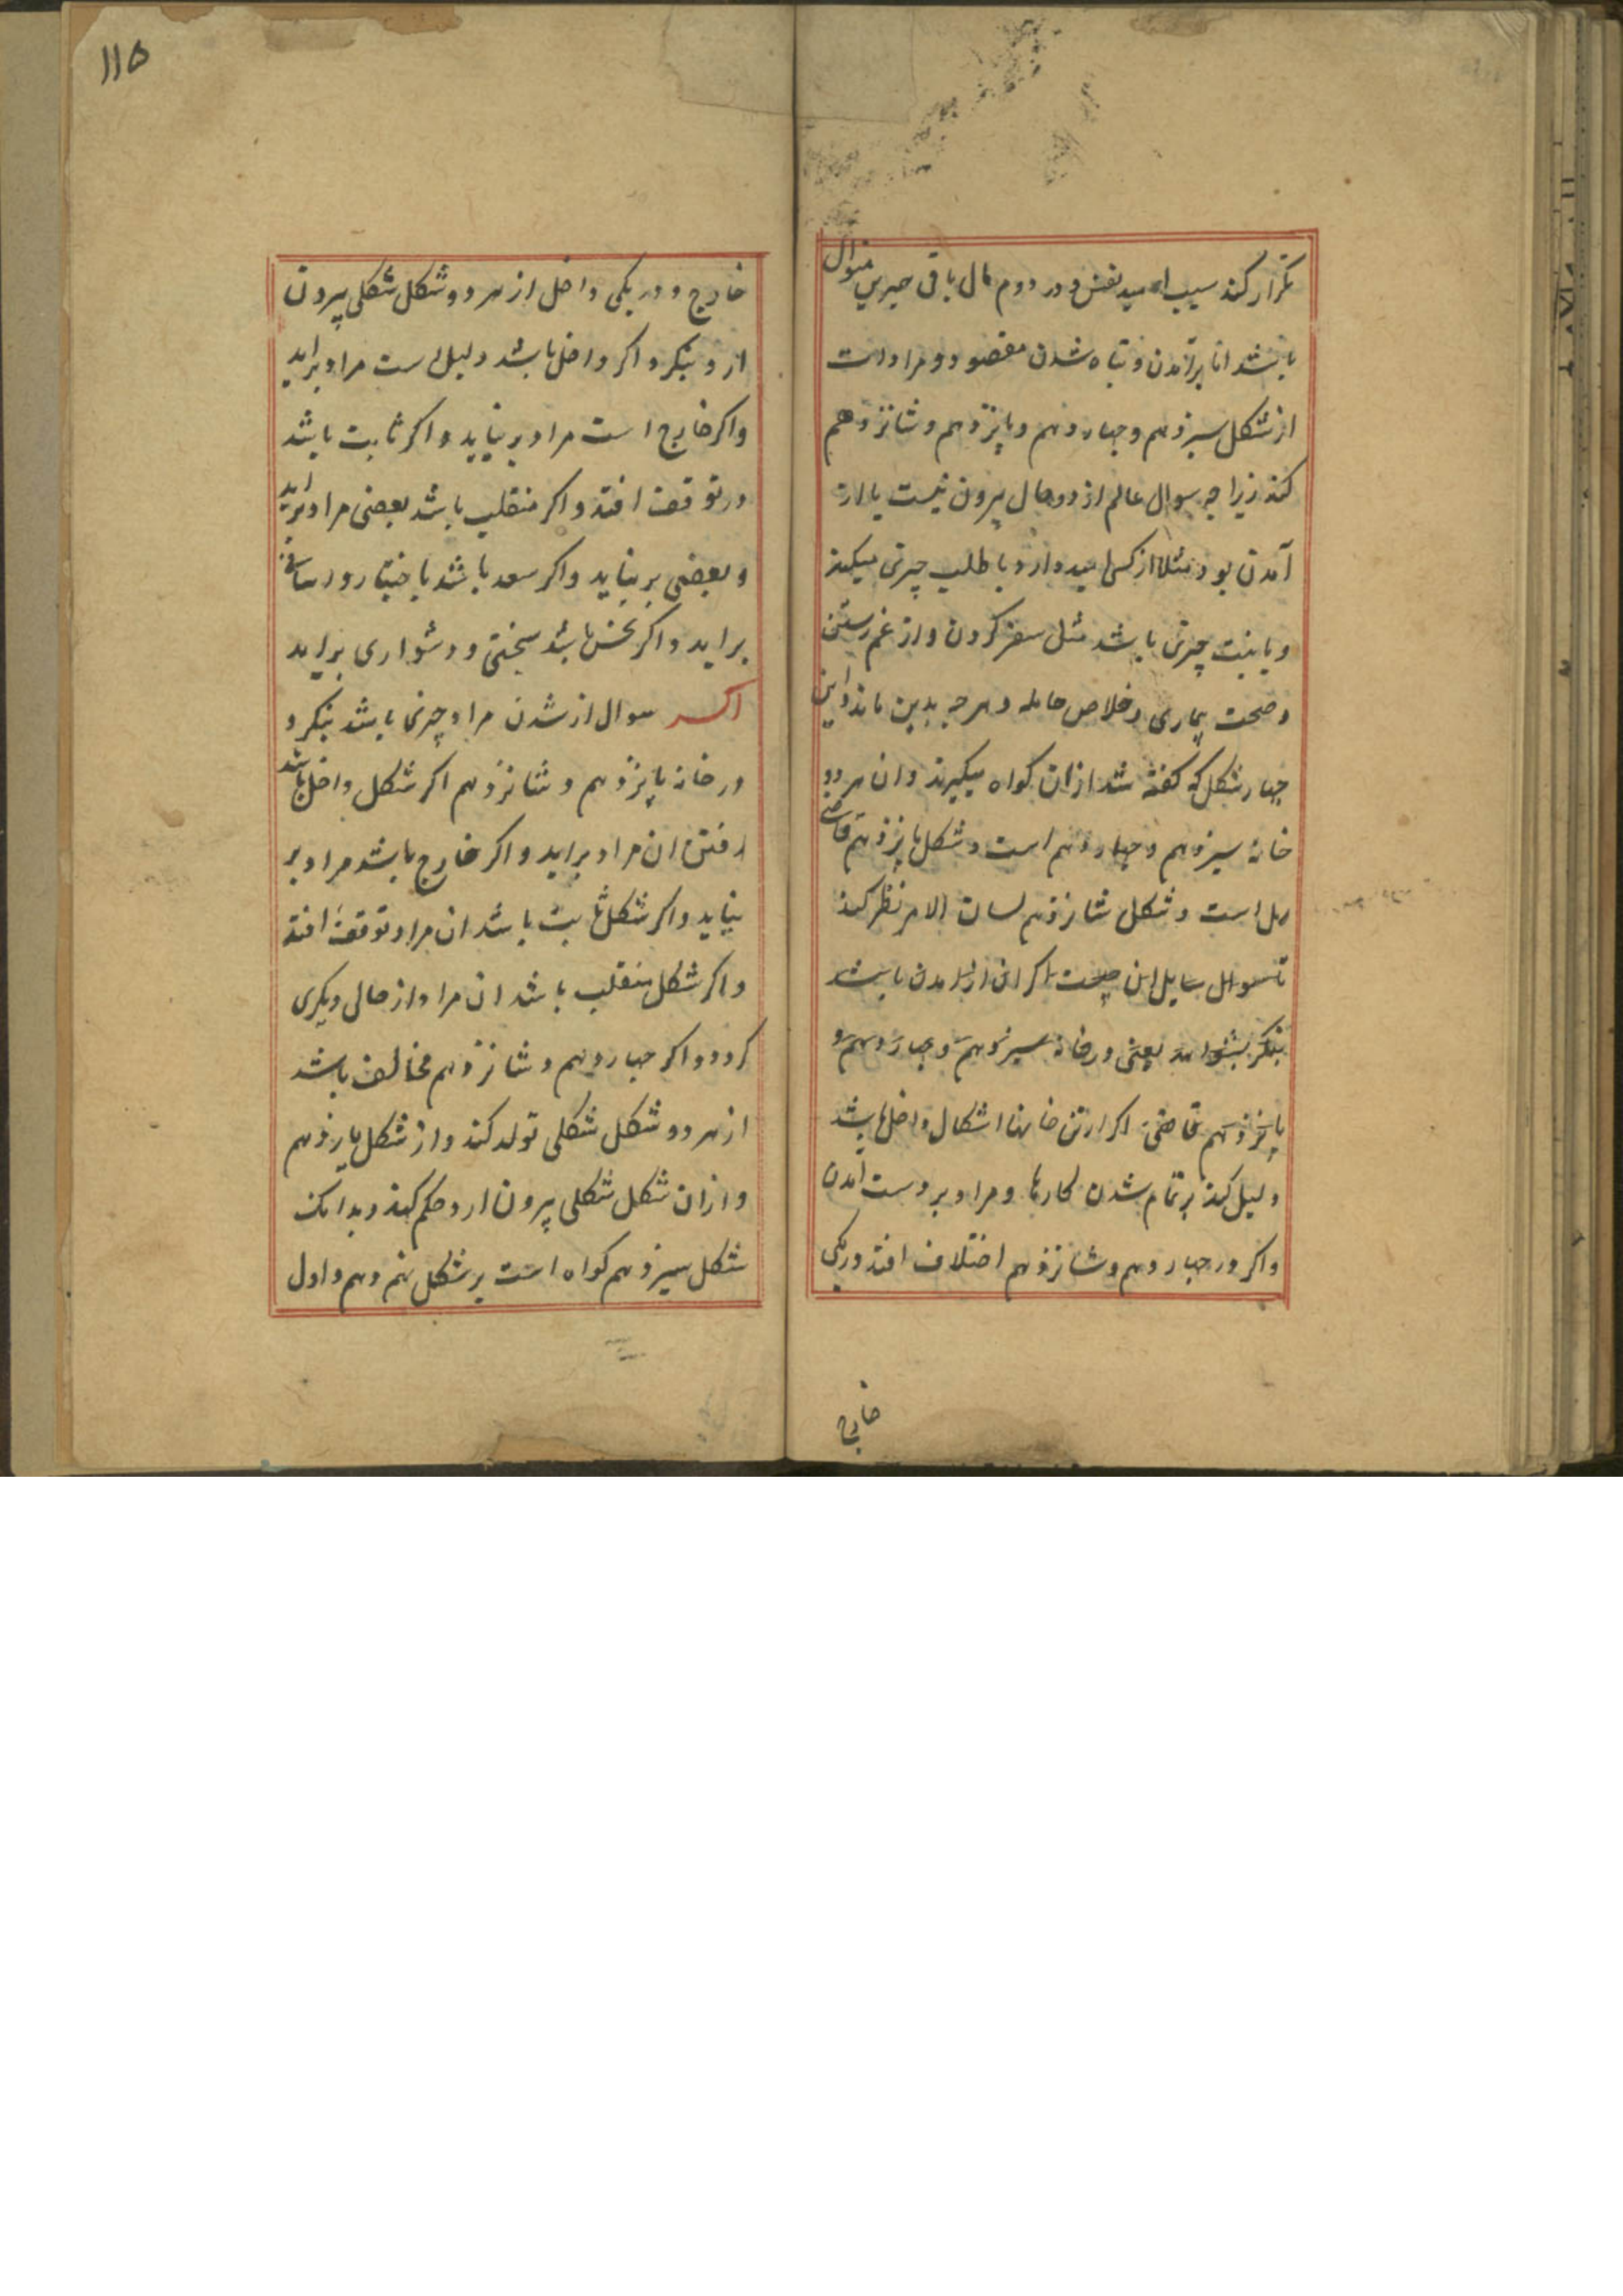 تکرار کند سبب امید نفس و در دوم مال باقی همبرین منوال
باشد اما برآمدن و تباه شدن مقصود و مرادات
از شکل سیزدهم و چهاردهم و پانزدهم و شانزدهم
کند زیرا چه سوال عالم از دو حال بیرون نیست یا از
آمدن بود مثلا از کسی امید دارد یا طلب چیزی میکند
و یا بنت چیزی باشد مثل سفر کردن و از غم رستن
و صحت بیماری و خلاص حامله و هرچه بدین ماند و این
چهار شکل که گفته شد ازان گواه میگیرند و ان هر دو
خانه سیزدهم و چهاردهم است و شکل پانزدهم قاضی
رمل است و شکل شانزدهم لسان الامر نظر کند
تا سوال سایل این چیست اگر از برامدن باشد
بنگر بشواهد یعنی در خانه سیزدهم و چهاردهم و
پانزدهم قاضی اگر ازین خانها اشکال داخل باشد
دلیل کند بر تمام شدن کارها و مراد بر دست آمدن
و اگر در چهاردهم و شانزدهم اختلاف افتد در یکی
خارج
۱۱۵
خارج و در یکی داخل از هر دو شکل شکلی بیرون
ارد بنگرد اگر داخل باشد دلیل است مراد براید
و اگر خارج است مراد بر نیاید و اگر ثابت باشد
در توقف افتد و اگر منقلب باشد بعضی مراد براید
و بعضی بر نیاید و اگر سعد باشد باختیار و راسانی
براید و اگر نحس باشد بسختی و دشواری براید
اگر سوال از شدن مراد چیزی باشد بنگرد
در خانه پانزدهم و شانزدهم اگر شکل داخل باشد
رفتن ان مراد براید و اگر خارج باشد مراد بر
نیاید و اگر شکل ثابت باشد ان مراد توقف افتد
و اگر شکل منقلب باشد ان مراد از حالی دیگری
گردد و اگر چهاردهم و شانزدهم مخالف باشد
از هر دو شکل شکلی تولد کند و از شکل یازدهم
و ازان شکل شکلی بیرون ارد و حکم کند و بدانک
شکل سیزدهم گواه است بر شکل نهم و دهم و اول